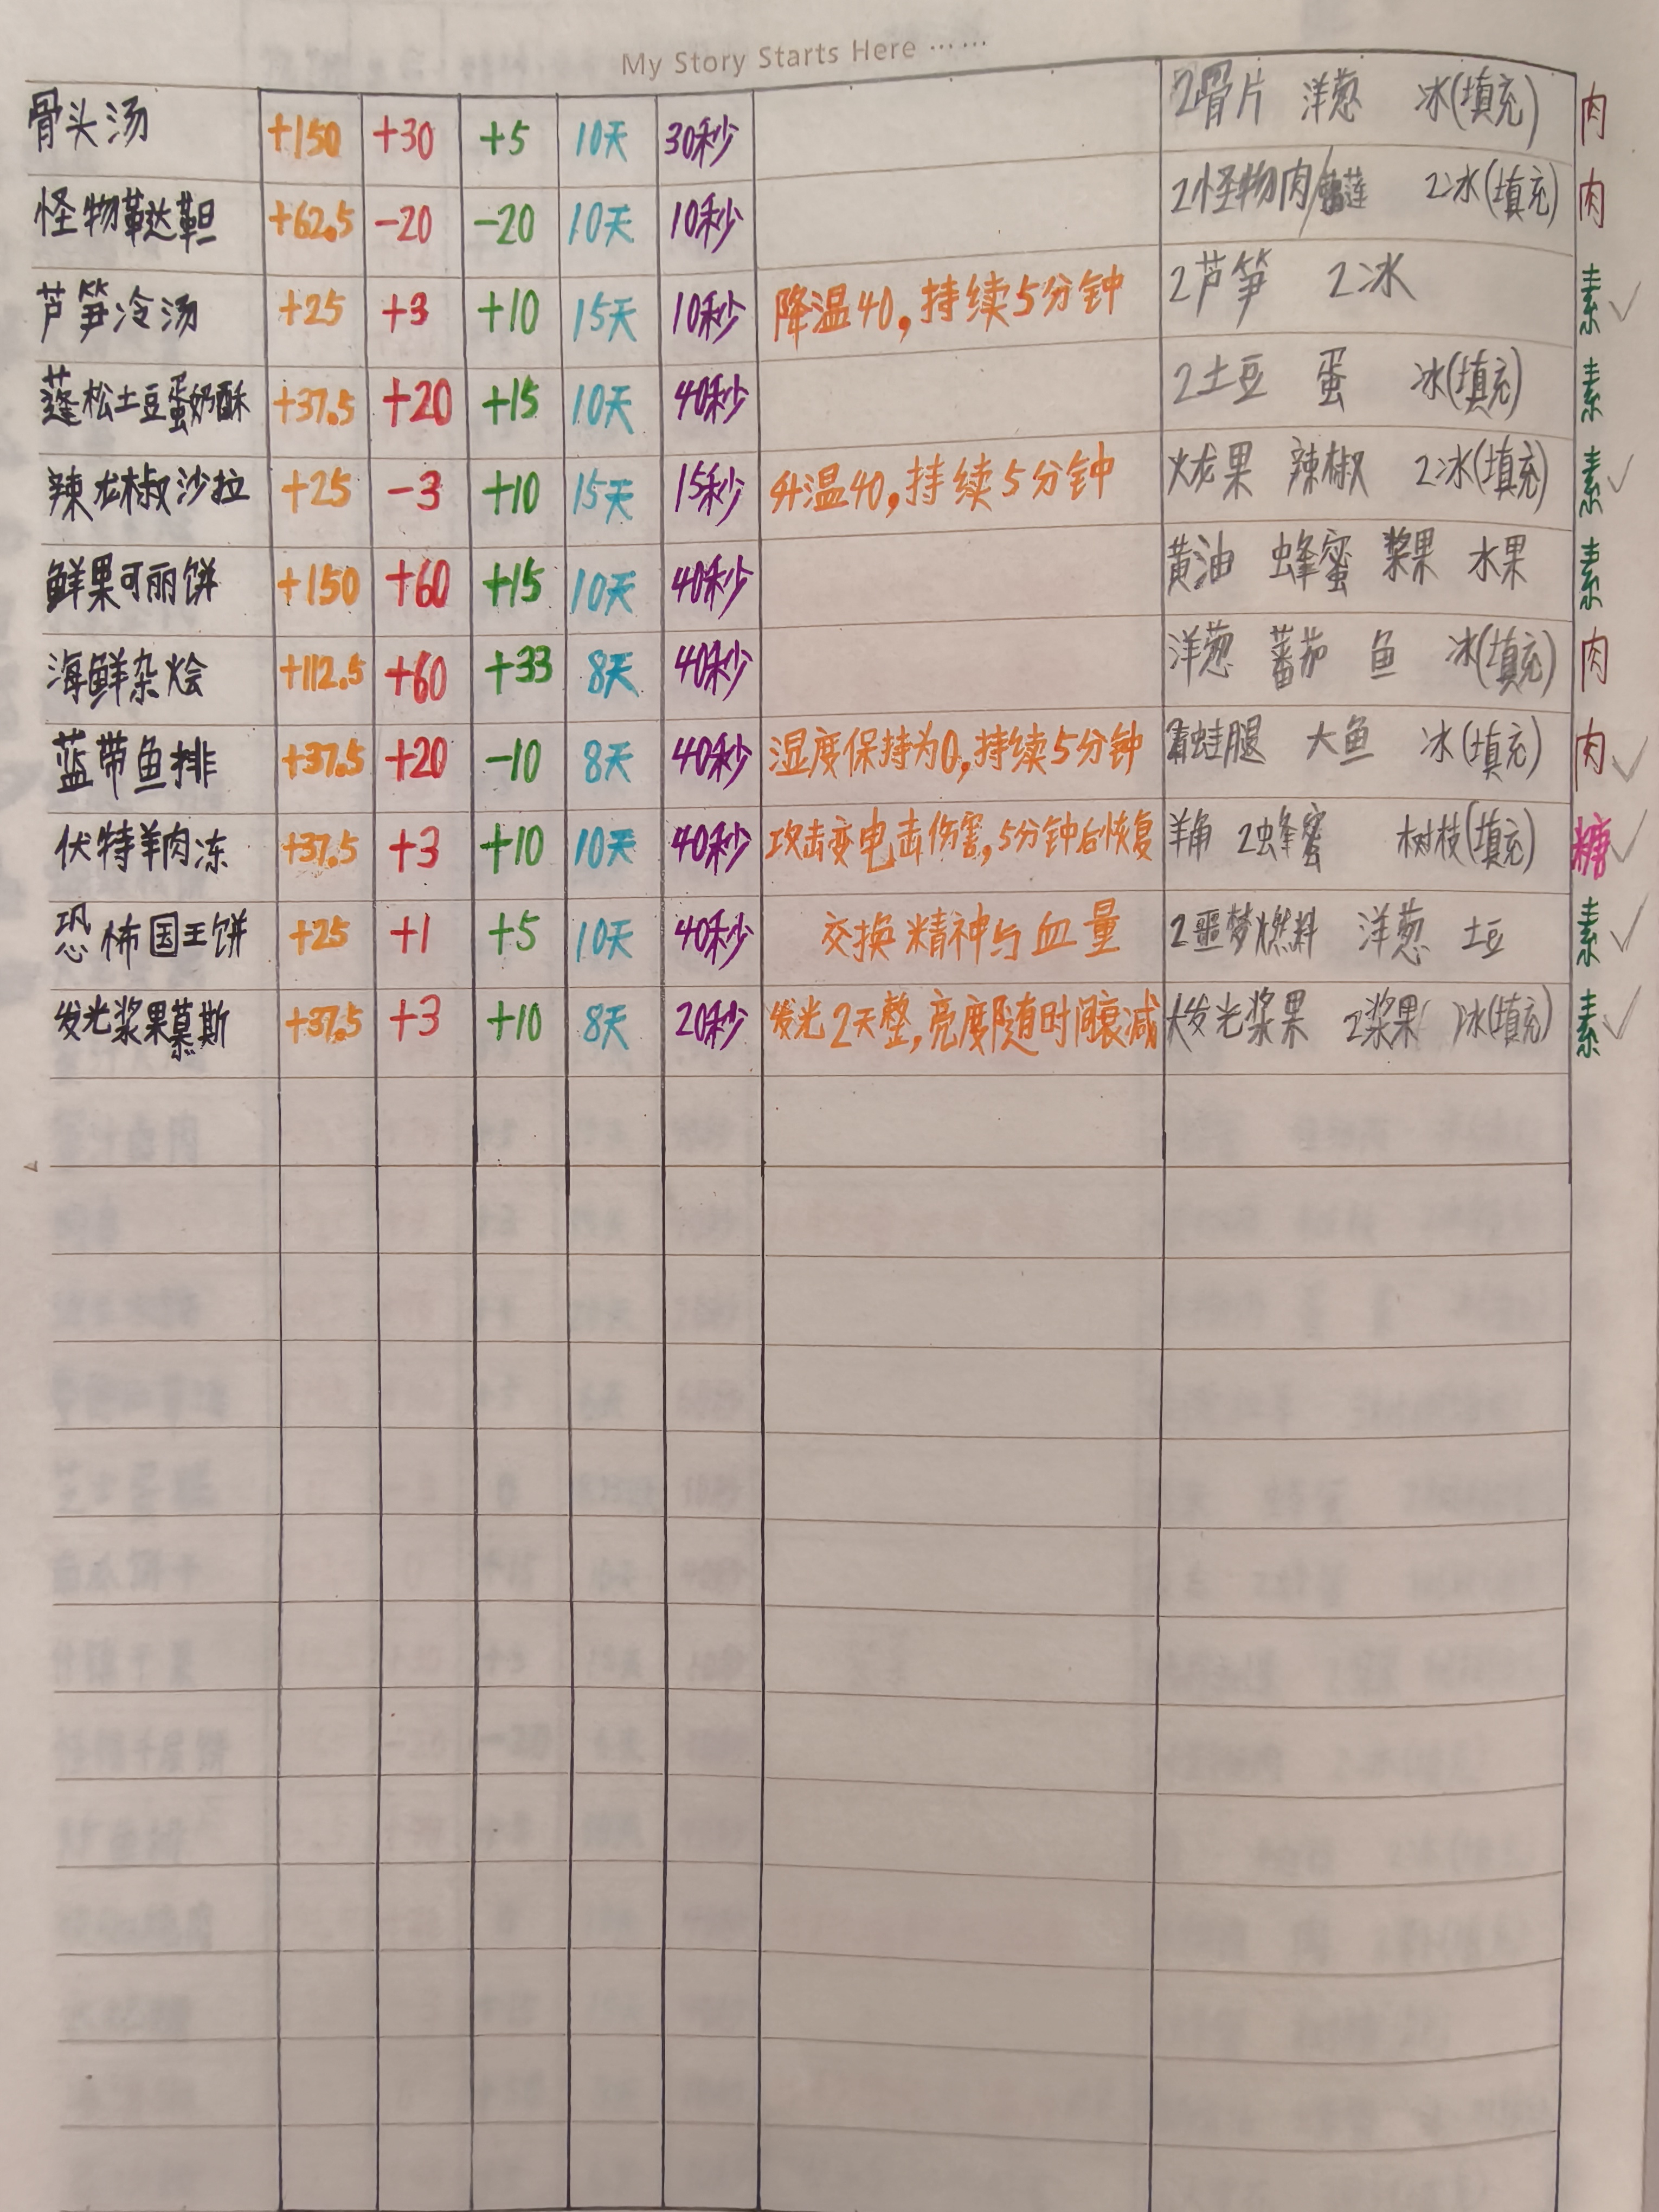 My Story Starts Here ······
骨头汤 +150 +30 +5 10天 30秒 2骨片 洋葱 冰(填充) 肉
怪物鞑靼 +62.5 -20 -20 10天 10秒 2怪物肉/ 2冰(填充) 肉
芦笋冷汤 +25 +3 +10 15天 10秒 降温40,持续5分钟 2芦笋 2冰 素✓
蓬松土豆蛋奶酥 +37.5 +20 +15 10天 40秒 2土豆 蛋 冰(填充) 素
辣龙椒沙拉 +25 -3 +10 15天 15秒 升温40,持续5分钟 火龙果 辣椒 2冰(填充) 素✓
鲜果可丽饼 +150 +60 +15 10天 40秒 黄油 蜂蜜 浆果 水果 素
海鲜杂烩 +112.5 +60 +33 8天 40秒 洋葱 蕃茄 鱼 冰(填充) 肉
蓝带鱼排 +37.5 +20 -10 8天 40秒 湿度保持为0,持续5分钟 青蛙腿 大鱼 冰(填充) 肉✓
伏特羊肉冻 +37.5 +3 +10 10天 40秒 攻击变电击伤害,5分钟后恢复 羊角 2蜂蜜 树枝(填充) 糖✓
恐怖国王饼 +25 +1 +5 10天 40秒 交换精神与血量 2噩梦燃料 洋葱 土豆 素✓
发光浆果慕斯 +37.5 +3 +10 8天 20秒 发光2天整,亮度随时间衰减 大发光浆果 2浆果 冰(填充) 素✓